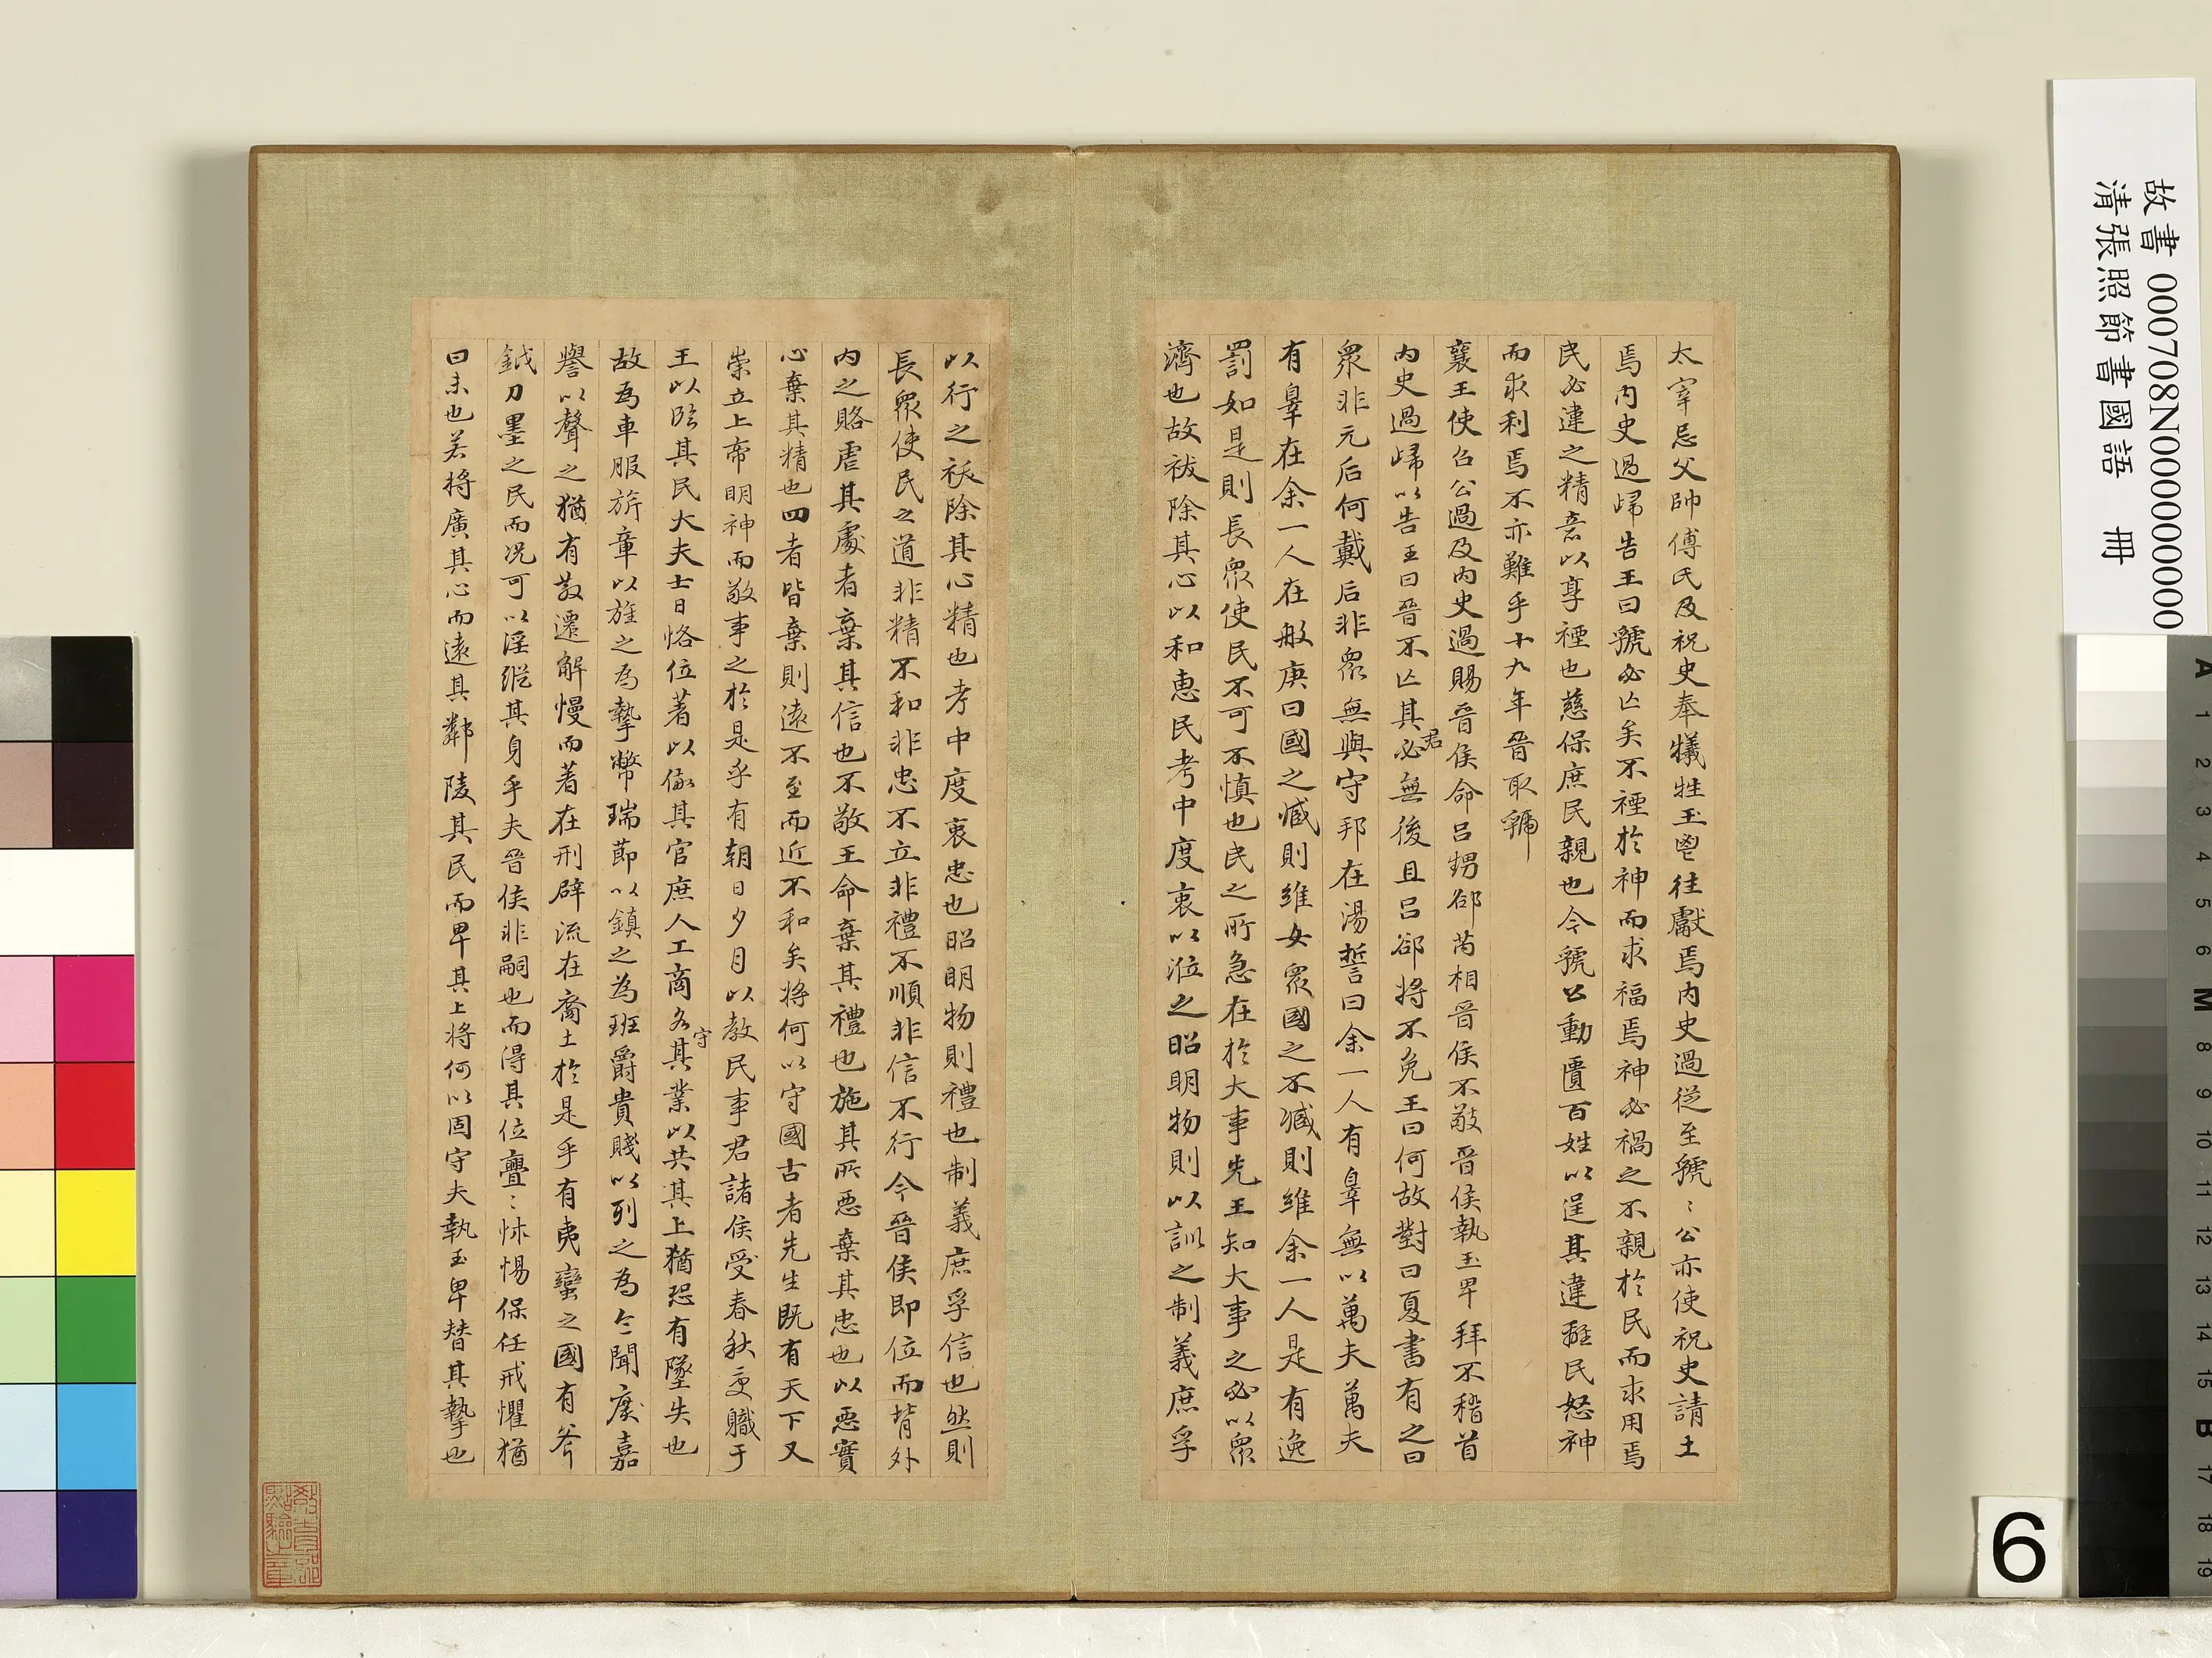 太宰忌父帥傅氏及祝史奉犧牲玉鬯往獻焉內史過從至虢〻公亦使祝史請土
焉內史過歸告王曰虢必亾矣不禋於神而求福焉神必禍之不親於民而求用焉
民必違之精意以享禋也慈保庶民親也今虢公動匱百姓以逞其違離民怒神
而求利焉不亦難乎十九年晉取虢
襄王使召公過及內史過賜晉侯命呂甥郤芮相晉侯不敬晉侯執玉卑拜不稽首
內史過歸以告王曰晉不亾其君必無後且呂郤將不免王曰何故對曰夏書有之曰
眾非元后何戴后非眾無與守邦在湯誓曰余一人有辠無以萬夫萬夫
有辠在余一人在般庚曰國之臧則維女眾國之不臧則維余一人是有逸
罰如是則長眾使民不可不慎也民之所急在於大事先王知大事之必以眾
濟也故祓除其心以和惠民考中度衷以涖之昭明物則以訓之制義庶孚
以行之祓除其心精也考中度衷忠也昭明物則禮也制義庶孚信也然則
長眾使民之道非精不和非忠不立非禮不順非信不行今晉侯即位而背外
內之賂虐其處者棄其信也不敬王命棄其禮也施其所惡棄其忠也以惡實
心棄其精也四者皆棄則遠不至而近不和矣將何以守國古者先生既有天下又
崇立上帝明神而敬事之於是乎有朝日夕月以教民事君諸侯受春秋受職于
王以臨其民大夫士日恪位著以儆其官庶人工商各守其業以共其上猶恐有墜失也
故為車服旂章以旌之為摯幣瑞節以鎮之為班爵貴賤以列之為令聞廣嘉
譽以聲之猶有散遷解慢而著在刑辟流在裔土於是乎有夷蠻之國有斧
鉞刀墨之民而況可以淫縱其身乎夫晉侯非嗣也而得其位亹〻怵惕保任戒懼猶
曰未也若將廣其心而遠其鄰陵其民而卑其上將何以固守夫執玉卑替其摯也
故書 000708N000000000
清張照節書國語 冊
6
A 1 2 3 4 5 6 M 8 9 10 11 12 13 14 15 B 17 18 19